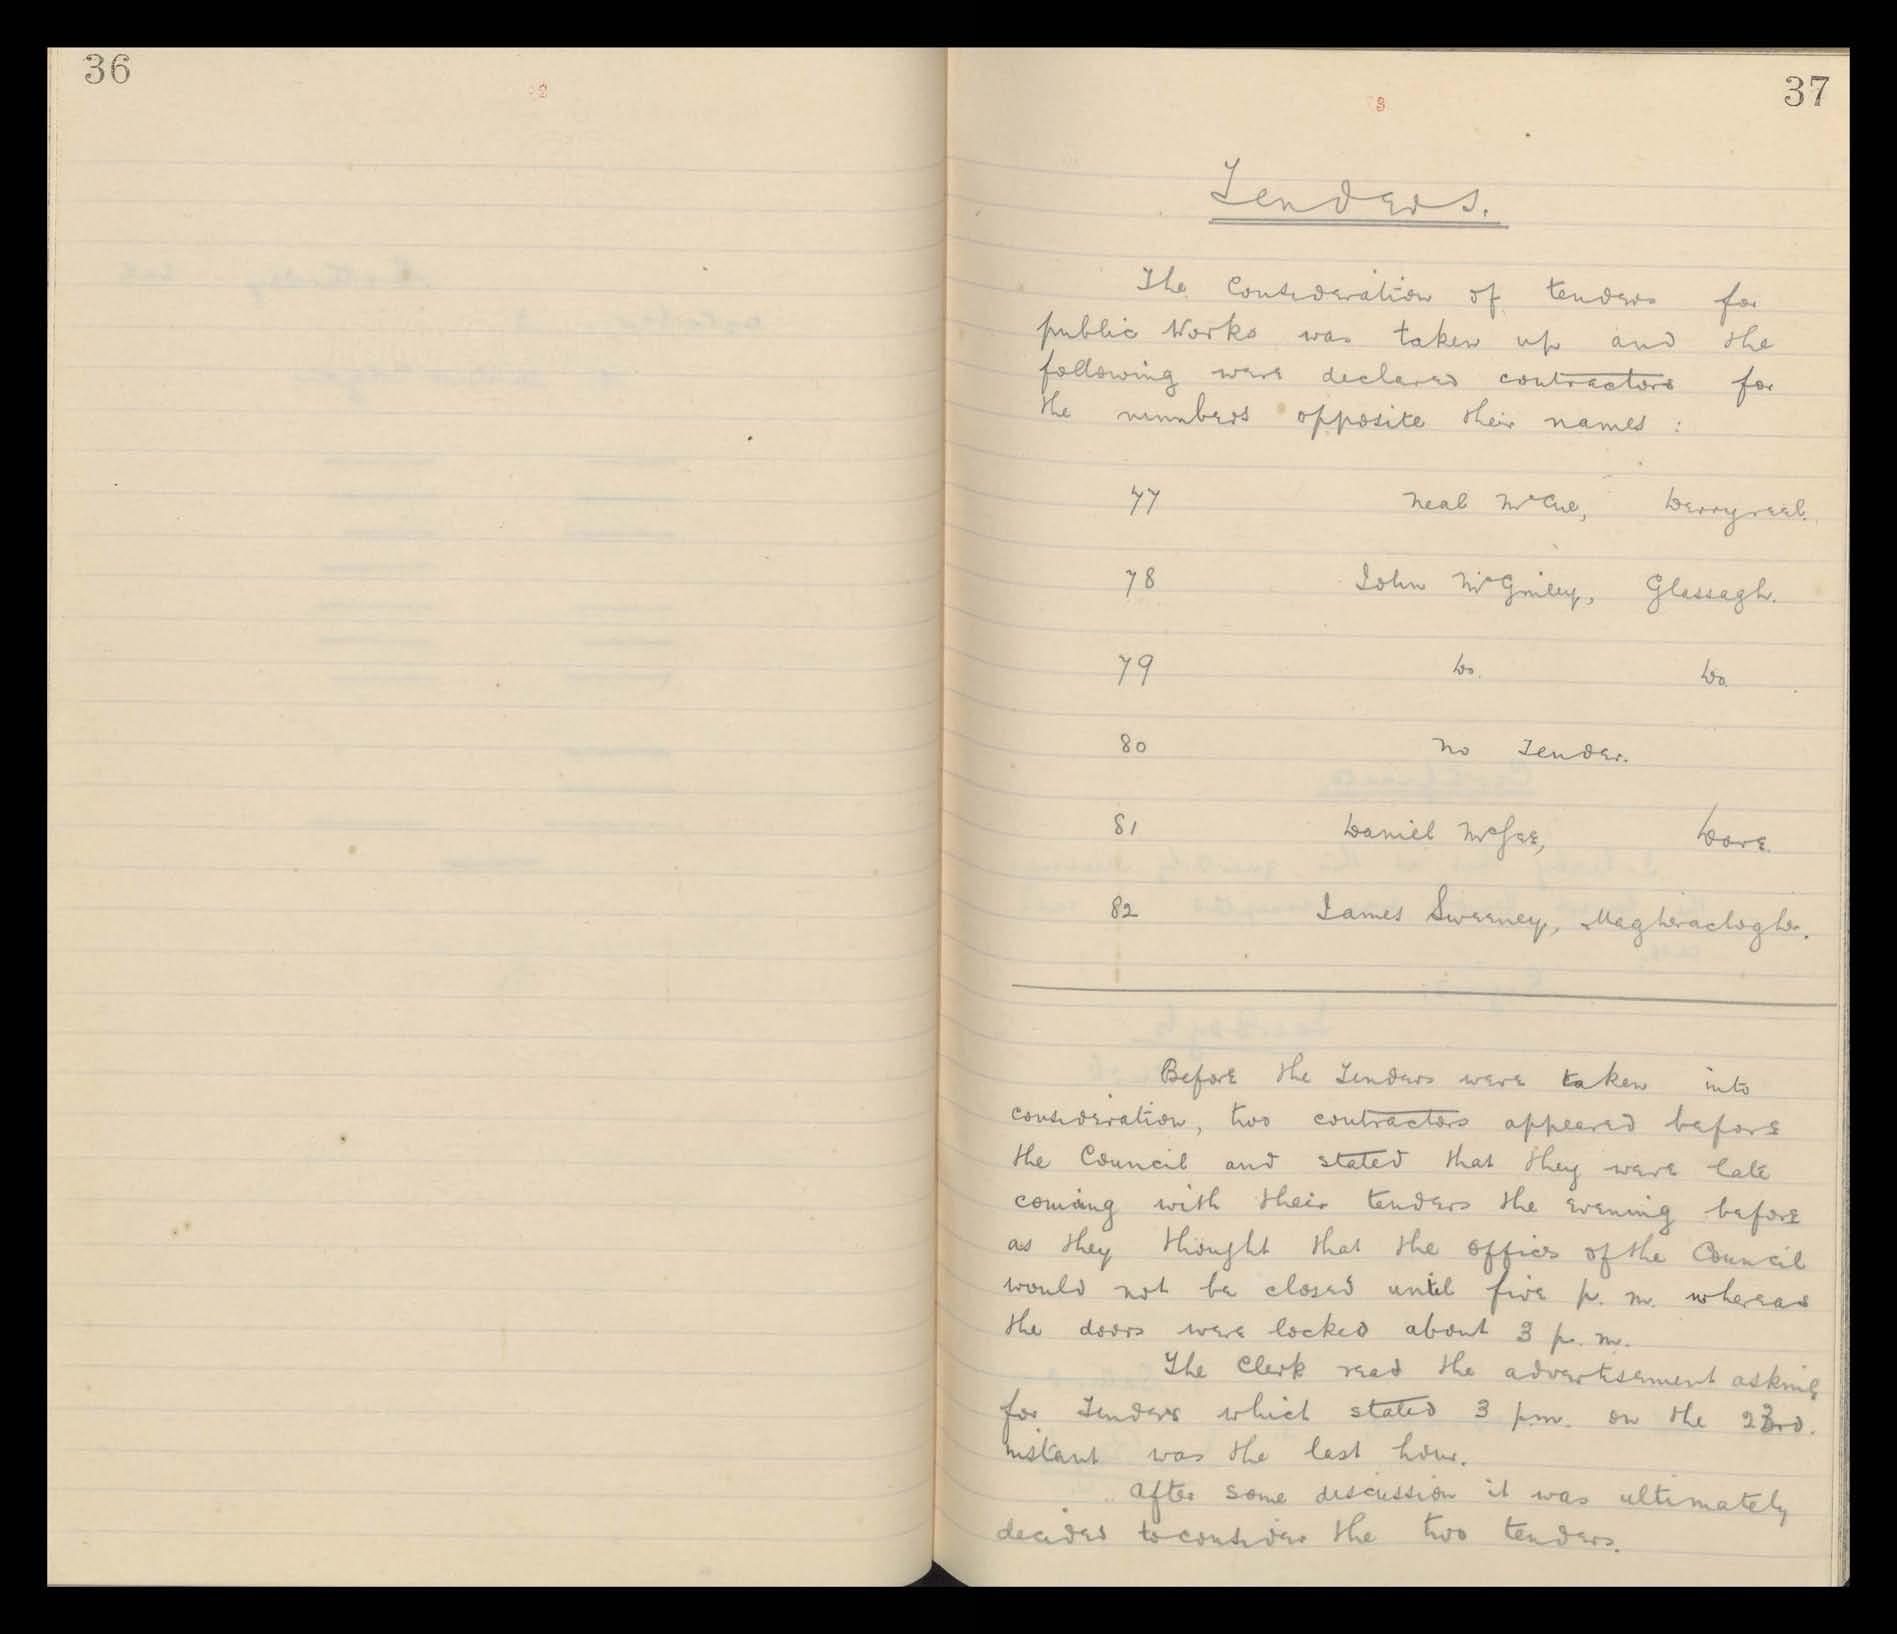 36
37
Tenders.
The Consideration of tenders for
public Works was taken up and the
following were declared contractors for
the numbers opposite their names :
77 Neal McCue, Derryreel.
78 John McGinley, Glassagh.
79 Do. Do.
80 No Tender.
81 Daniel McGee, Dore.
82 James Sweeney, Magheraclogher.
Before the Tenders were taken into
consideration, two contractors appeared before
the Council and stated that they were late
coming with their tenders the evening before
as they thought that the offices of the Council
would not be closed until five p. m. whereas
the doors were locked about 3 p. m.
The Clerk read the advertisement asking
for Tenders which stated 3 p.m. on the 23rd.
instant was the last hour.
After some discussion it was ultimately
decided to consider the two tenders.